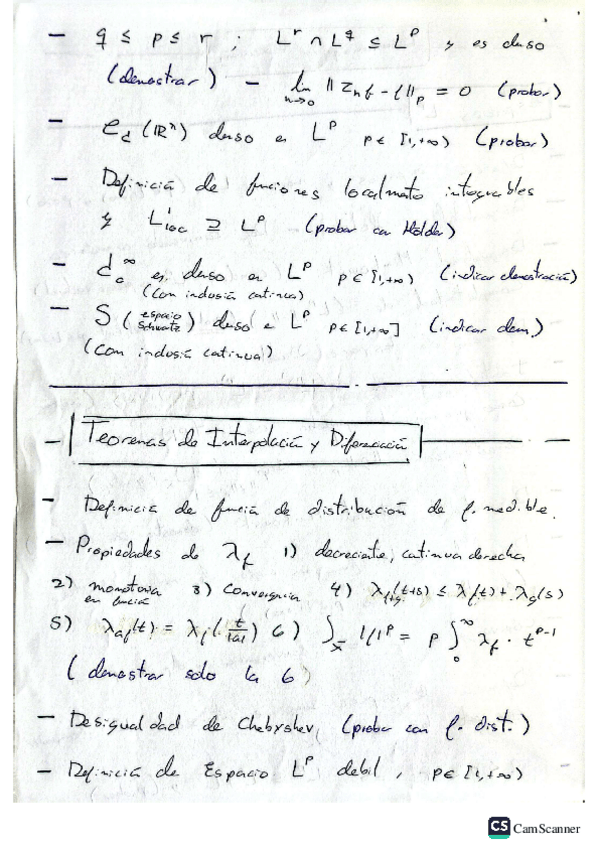 - q ≤ p ≤ r ; L^r ∩ L^q ⊆ L^p y es denso
(demostrar) - lim_{n→0} ‖τ_n f - f‖_p = 0 (probar)
- C_c(ℝ^n) denso en L^p p∈[1,+∞) (probar)
- Definición de funciones localmente integrables
y L^1_loc ⊇ L^p (probar con Hölder)
- C_0^∞ es denso en L^p p∈[1,+∞) (indicar demostración)
(con inclusión continua)
- S (espacio Schwartz) denso en L^p p∈[1,+∞] (indicar dem.)
(con inclusión continua)
- Teoremas de Interpolación y Diferenciación
- Definición de función de distribución de f. medible.
- Propiedades de λ_f 1) decreciente, continua derecha
2) monotonía en función 3) convergencia 4) λ_{f+g}(t+s) ≤ λ_f(t) + λ_g(s)
5) λ_{af}(t) = λ_f(t/|a|) 6) ∫_X |f|^p = p ∫_0^∞ λ_f · t^{p-1}
(demostrar solo la 6)
- Desigualdad de Chebyshev, (probar con f. dist.)
- Definición de Espacio L^p debil, p∈[1,+∞)
CS CamScanner